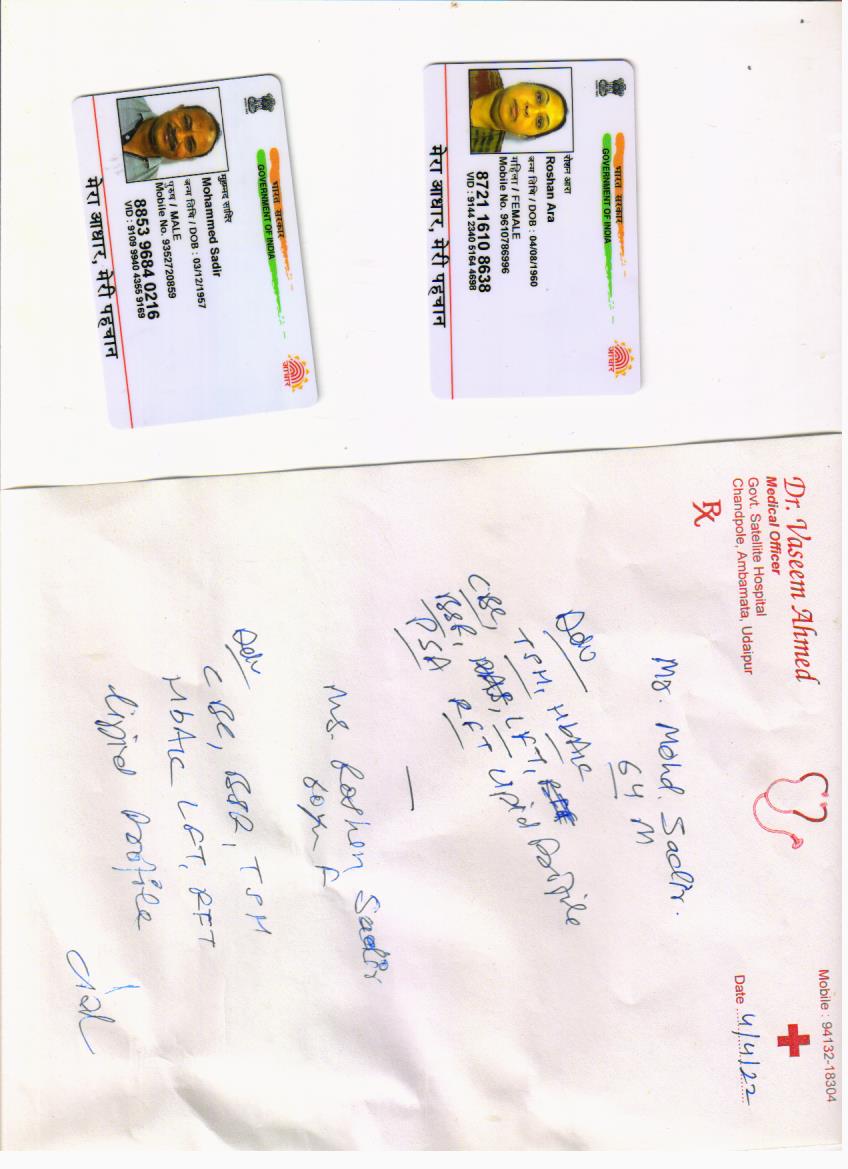 भारत सरकार
GOVERNMENT OF INDIA
रोशन आरा
Roshan Ara
जन्म तिथि / DOB : 04/08/1960
महिला / FEMALE
Mobile No. 9610786996
8721 1610 8638
VID : 9144 2340 5164 4698
आधार
मेरा आधार, मेरी पहचान
भारत सरकार
GOVERNMENT OF INDIA
मुहम्मद सादिर
Mohammed Sadir
जन्म तिथि / DOB : 03/12/1957
पुरुष / MALE
Mobile No. 9352720859
8853 9684 0216
VID : 9109 9940 4355 9169
आधार
मेरा आधार, मेरी पहचान
Mobile : 94132-18304
Dr. Vaseem Ahmed
Medical Officer
Govt. Satellite Hospital
Chandpole, Ambamata, Udaipur
Date 4/4/22
Rx
Mr. Mohd. Sadir.
64 M
Adv
TSH, HbA1c
CBC, LFT, Lipid Profile
BSR, RFT
PSA
Ms. Roshen Sadir
F
Adv
CBC, BSR, TSH
HbA1c LFT, RFT
Lipid Profile